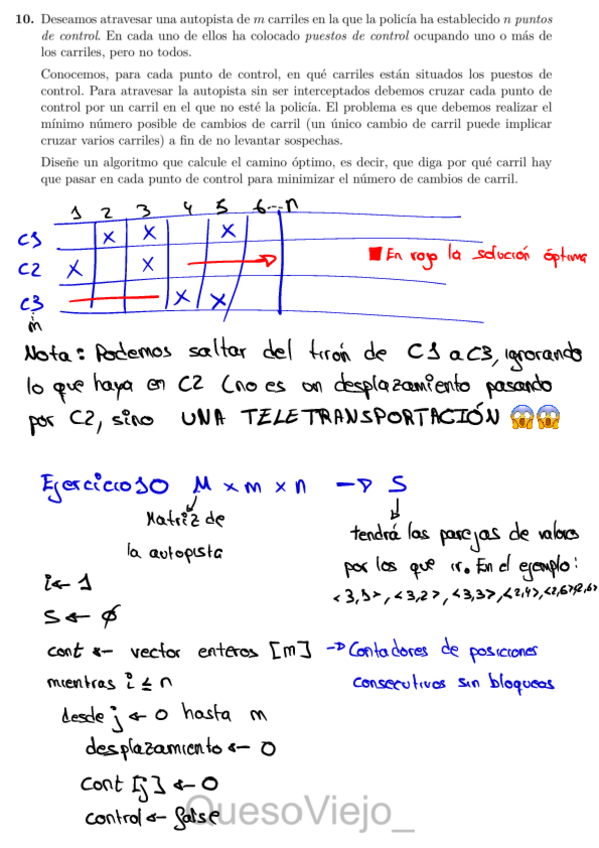 10. Deseamos atravesar una autopista de m carriles en la que la policía ha establecido n puntos
de control. En cada uno de ellos ha colocado puestos de control ocupando uno o más de
los carriles, pero no todos.
Conocemos, para cada punto de control, en qué carriles están situados los puestos de
control. Para atravesar la autopista sin ser interceptados debemos cruzar cada punto de
control por un carril en el que no esté la policía. El problema es que debemos realizar el
mínimo número posible de cambios de carril (un único cambio de carril puede implicar
cruzar varios carriles) a fin de no levantar sospechas.
Diseñe un algoritmo que calcule el camino óptimo, es decir, que diga por qué carril hay
que pasar en cada punto de control para minimizar el número de cambios de carril.
1 2 3 4 5 6...n
C1 X X X
C2 X X
C3 X X
m
En rojo la solución óptima
Nota: Podemos saltar del tirón de C1 a C3, ignorando
lo que haya en C2 (no es un desplazamiento pasando
por C2, sino UNA TELETRANSPORTACIÓN 😱😱
Ejercicio10 M x m x n → S
Matriz de
la autopista
tendrá las parejas de valores
por los que ir. En el ejemplo:
<3,1>, <3,2>, <3,3>, <2,4>, <2,5>
i ← 1
S ← ∅
cont ← vector enteros [m] → Contadores de posiciones
consecutivos sin bloqueos
mientras i ≤ n
desde j ← 0 hasta m
desplazamiento ← 0
cont [j] ← 0
control ← false
QuesoViejo_